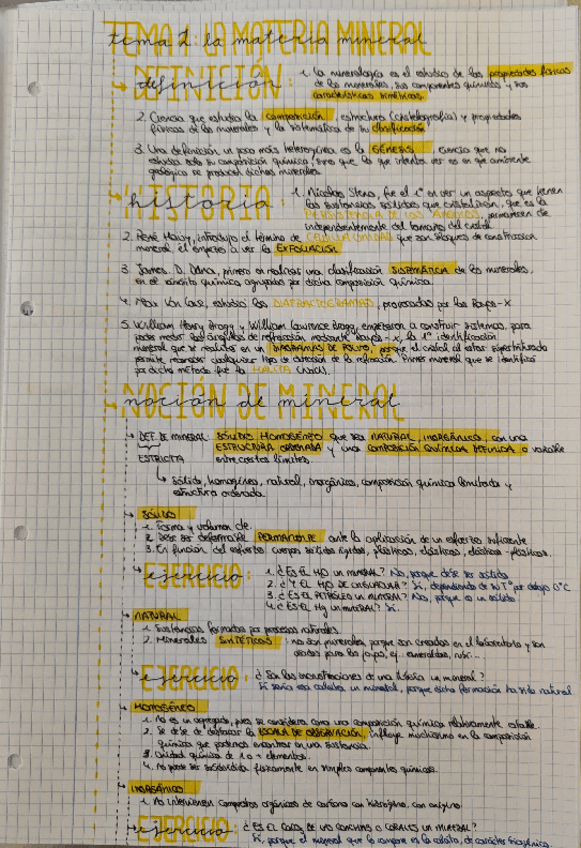 TEMA 1: LA MATERIA MINERAL
tema 1: la materia mineral
DEFINICIÓN:
definición
1. La mineralogía es el estudio de las propiedades físicas
de los minerales, sus componentes químicos y sus
características simétricas.
2. Ciencia que estudia la composición, estructura (cristalografía) y propiedades
físicas de los minerales y la sistemática de su clasificación
3. Una definición un poco más heterogénea es la GÉNESIS, ciencia que no
estudia solo su composición química, sino que lo que intenta ver es en que ambiente
geológico se producen dichos minerales.
HISTORIA:
historia
1. Nicolas Steno, fue el 1º en ver un aspecto que tienen
las sustancias sólidas que cristalizan, que es la
PERSISTENCIA DE LOS ÁNGULOS, permanecen
independientemente del tamaño del cristal.
2. René Haüy, introdujo el término de CELDILLA UNIDAD que son bloques de construcción
mineral, él empezó a ver la EXFOLIACIÓN
3. James. D. Dana, primero en realizar una clasificación SISTEMÁTICA de los minerales,
en el ámbito química agrupados por dicha composición química.
4. Max Von Laue, estudió los DIFRACTOGRAMAS, provocados por los Rayos-X
5. William Henry Bragg y William Lawrence Bragg, empezaron a construir sistemas, para
poder medir los ángulos de refracción mediante Rayos-X, la 1ª identificación
mineral que se realiza en un DIAGRAMAS DE POLVO, porque el cristal al estar
permite cualquier tipo de dirección de la refracción. Primer mineral que se identificó
por dicho método fue la HALITA (NaCl).
NOCIÓN DE MINERAL
noción de mineral
DEF. DE MINERAL: SÓLIDO HOMOGÉNEO que sea NATURAL, INORGÁNICO, con una
ESTRICTA ESTRUCTURA ORDENADA y una COMPOSICIÓN QUÍMICA DEFINIDA o variable
entre ciertos límites.
sólido, homogéneo, natural, inorgánico, composición química limitada y
estructura ordenada.
SÓLIDO
1. Forma y volumen de.
2. Debe ser deformable PERMANENTE ante la aplicación de un esfuerzo suficiente
3. En función del esfuerzo cuerpos sólidos rígidos, plásticos, elásticos, elásticos-plásticos.
EJERCICIO:
ejercicio
1. ¿ES EL H₂O UN MINERAL? No, porque debe ser sólido
2. ¿Y EL H₂O DE UN GLACIAR? Sí, dependiendo de la Tª por debajo 0ºC
3. ¿ES EL PETRÓLEO UN MINERAL? No, porque no es un sólido
4. ¿ES EL Hg UN MINERAL? Sí.
NATURAL
1. Sustancias formadas por procesos naturales.
2. Minerales SINTÉTICOS: no son minerales porque son creados en el laboratorio y son
usados para las joyas, ej. esmeraldas, rubí...
EJERCICIO:
ejercicio
¿Son las incrustaciones de una tubería un mineral?
Sí sería esa calcita un mineral, porque dicha formación ha sido natural
HOMOGÉNEO
1. No es un agregado, pues se considera como una composición química relativamente estable.
2. Se debe de destacar la ESCALA DE OBSERVACIÓN, influye muchísimo en la composición
química que podemos encontrar en una sustancia.
3. Unidad química de 1 o + elementos.
4. No puede ser subdividida físicamente en simples componentes químicos.
INORGÁNICO
1. No intervienen compuestos orgánicos de carbono con hidrógeno, con oxígeno.
EJERCICIO:
ejercicio
¿ES EL CaCO₃ DE LAS CONCHAS O CORALES UN MINERAL?
Sí, porque el mineral que lo compone es la calcita, de carácter biogénico.